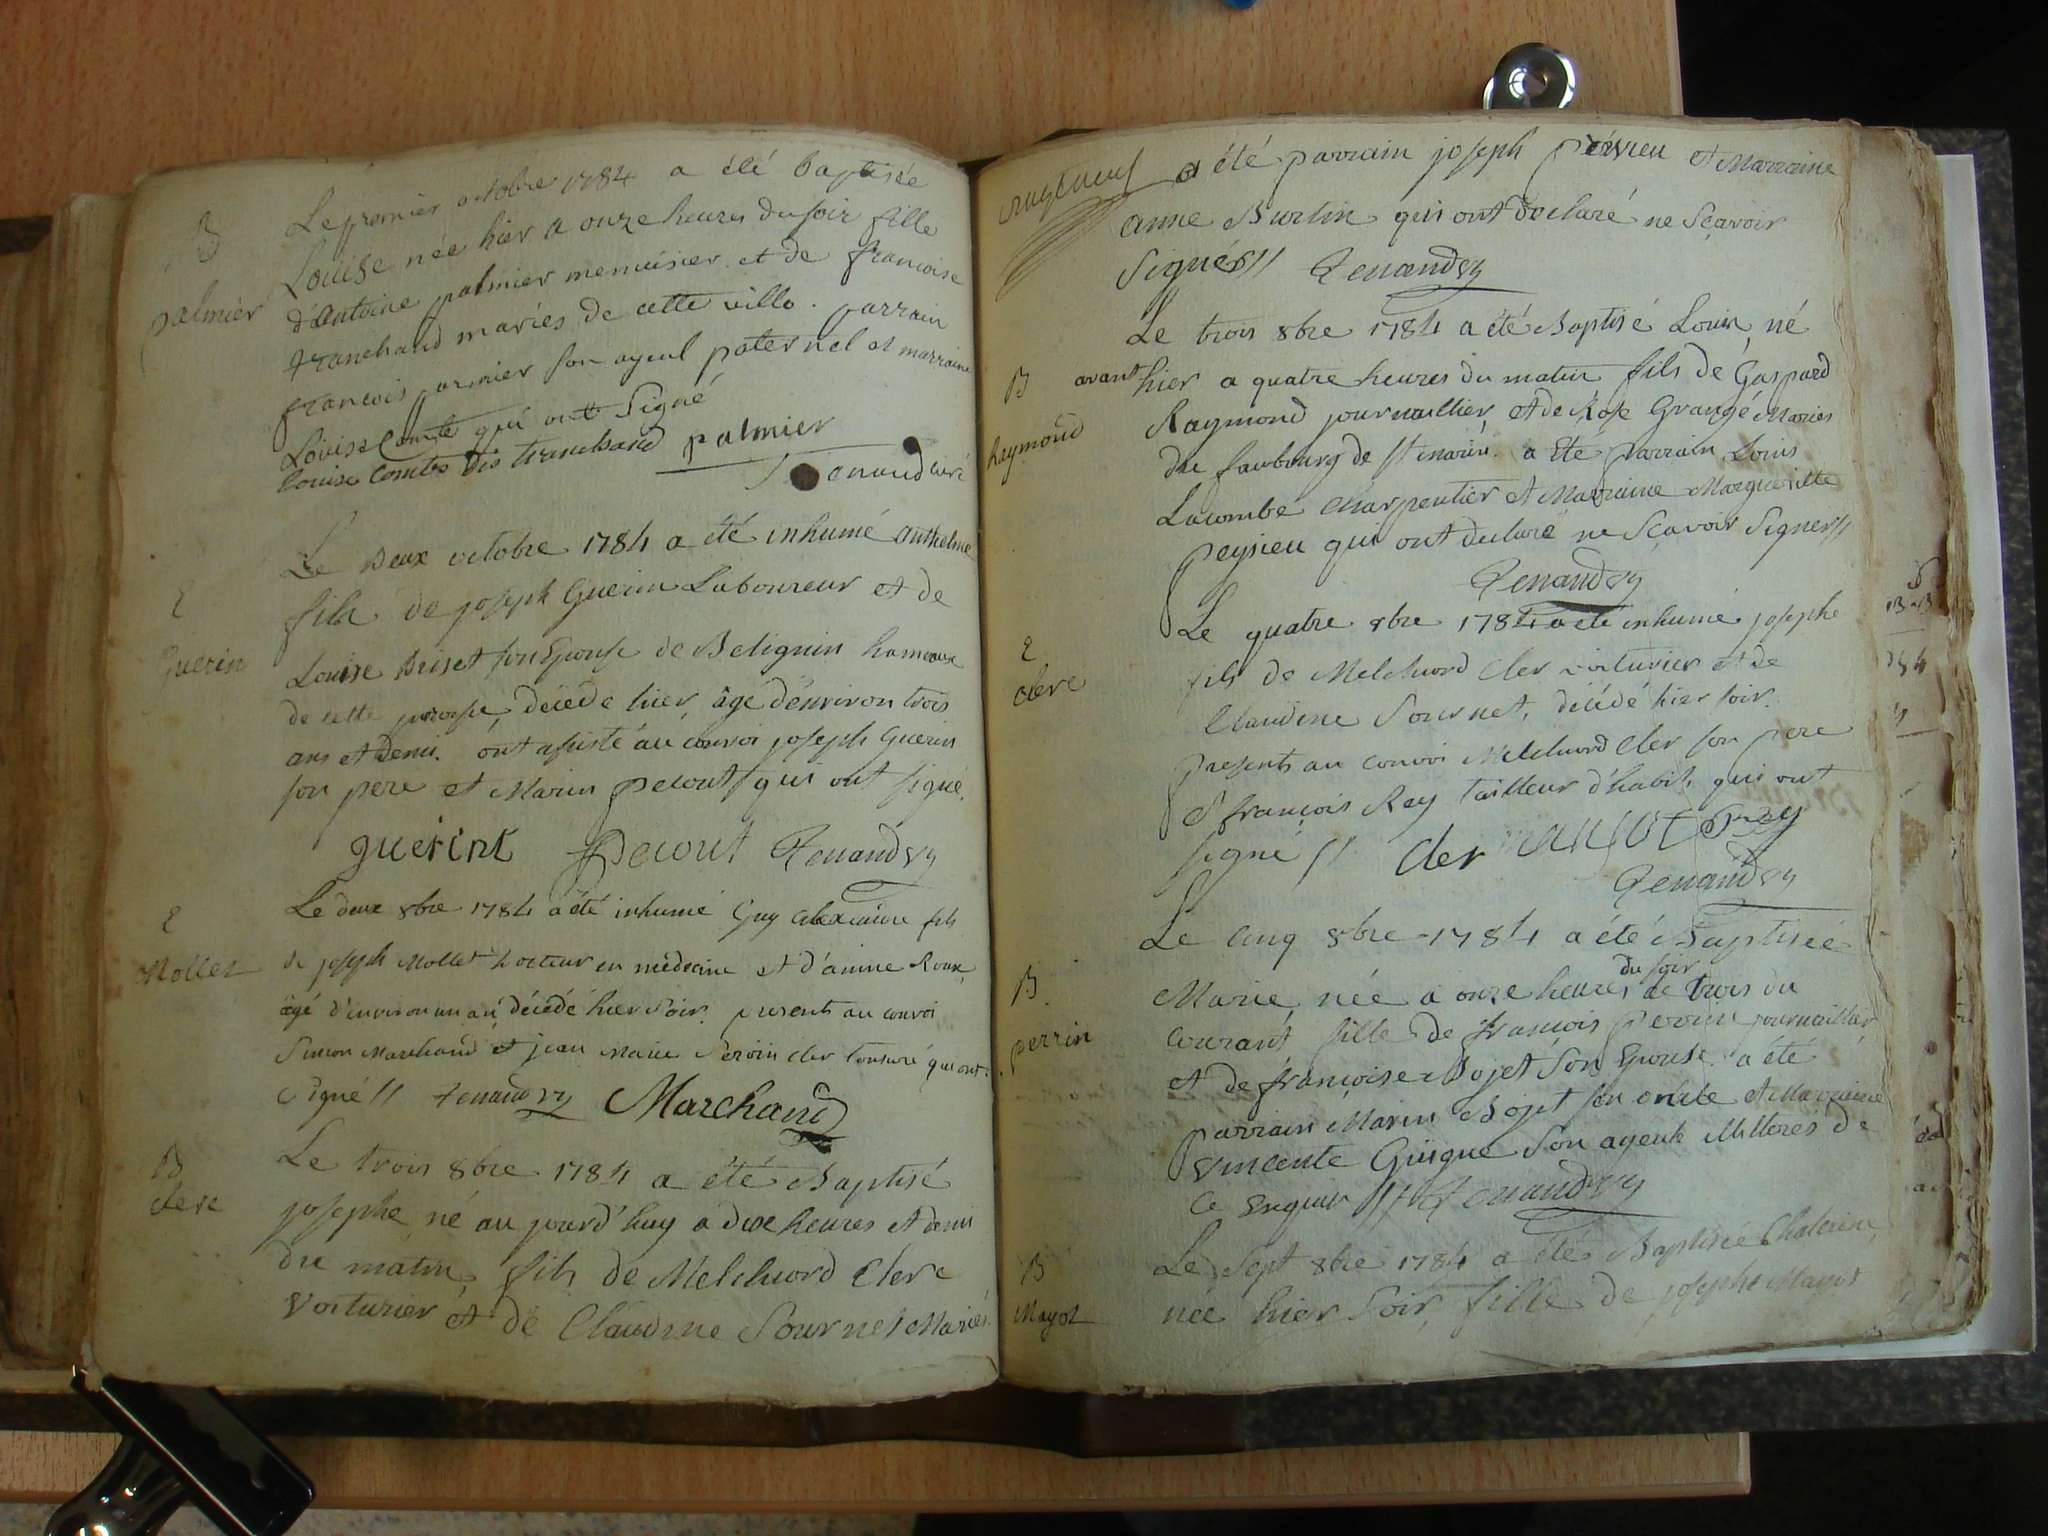 B
palmier
Le premier octobre 1784 a été baptisée
Louise née hier a onze heures du soir fille
d'Antoine palmier menuisier et de francoise
tranchand mariés de cette ville. parrain
francois parmier son ayeul paternel et marraine
Louise Comte qui ont Signé
Louise Comtes dis tranchand palmier
E
Guerin
Le Deux octobre 1784 a été inhumé anthelme
fils de joseph Guerin Laboureur et de
Louise Briset son Epouse de Belignin hameaux
de cette paroisse, décédé hier, âgé d'environ trois
ans et demi. ont assisté au convoi joseph Guerin
son pere et Marin pecout qui ont signé.
guerint pecout Renaud Vy
E
Mollet
Le deux 8bre 1784 a été inhumé Guy alexandre fils
de joseph Mollet Docteur en médecine et d'anne Roux
âgé d'environ un an décédé hier soir. presents au convoi
Simon Marchand et jean Marie Peroin cler tonsuré qui ont
Signé // Renaud Vy Marchand
B
clerc
Le trois 8bre 1784 a été Baptisé
josephe né au jourd'huy a dixe heures et demi
du matin, fils de Melchiord Clerc
Voiturier et de Claudine Sournet Mariés.
a été parrain joseph peivieu et Marraine
anne Burlin qui ont declaré ne Sçavoir
Signer // Renaud Vy
B
Raymond
Le trois 8bre 1784 a été Baptisé Louis, né
avant hier a quatre heures du matin fils de Gaspard
Raymond journaillier, et de Rose Grangé Mariés
du faubourg de st marin. a été parrain Louis
Lacombe Charpentier et Marraine Margueritte
peysieu qui ont declaré ne Sçavoir Signer //
Renaud Vy
E
clerc
Le quatre 8bre 1784 a été inhumé josephe
fils de Melchiord Cler voiturier et de
Claudine Sournet, décédé hier soir.
presents au convoi Melchiord Cler son pere
et françois Rey tailleur d'habit, qui ont
signé // Cler Rey
Renaud Vy
B
perrin
Le Cinq 8bre 1784 a été Baptisée
du soir
Marie, née a onze heures de trois du
courant fille de françois perrin journaillier
et de françoise Bojet Son Epouse. a été
parrain Marin Bojet son oncle et Marraine
Vincente Guigue Son ayeule illiterés de
ce Enquis // Renaud Vy
B
Mayot
Le Sept 8bre 1784 a été Baptisée Chaterine,
née hier Soir, fille de josephe Mayot